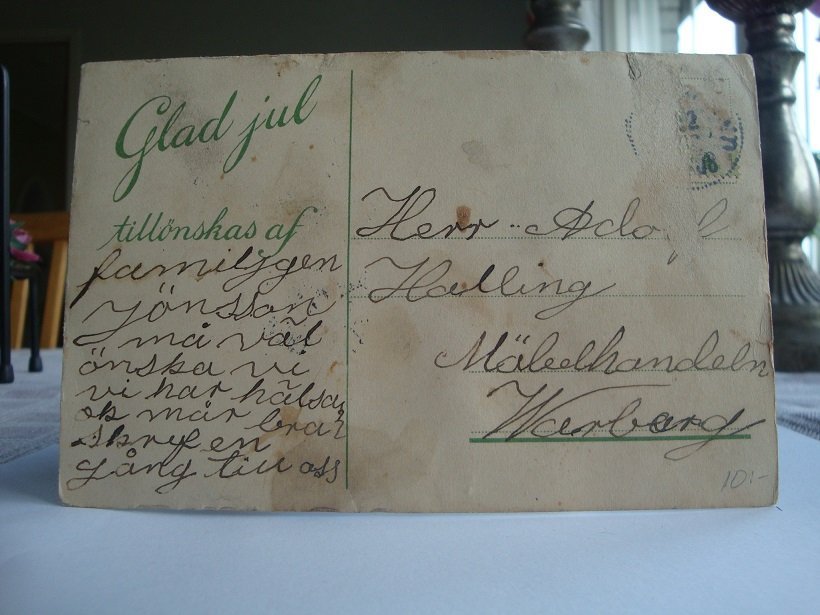 Glad jul
tillönskas af
familjgen
Jönsson
må väl
önska vi
vi har hälsan
ok mår bra
skrif en
gång till oss
Herr Adolf
Halling
Mäbelhandeln
Warberg
10:-